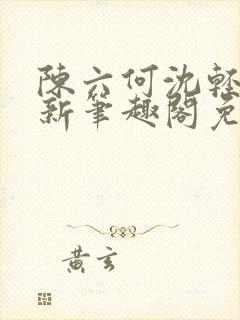 陳六何沈輕
新筆趣閣免
黄玄